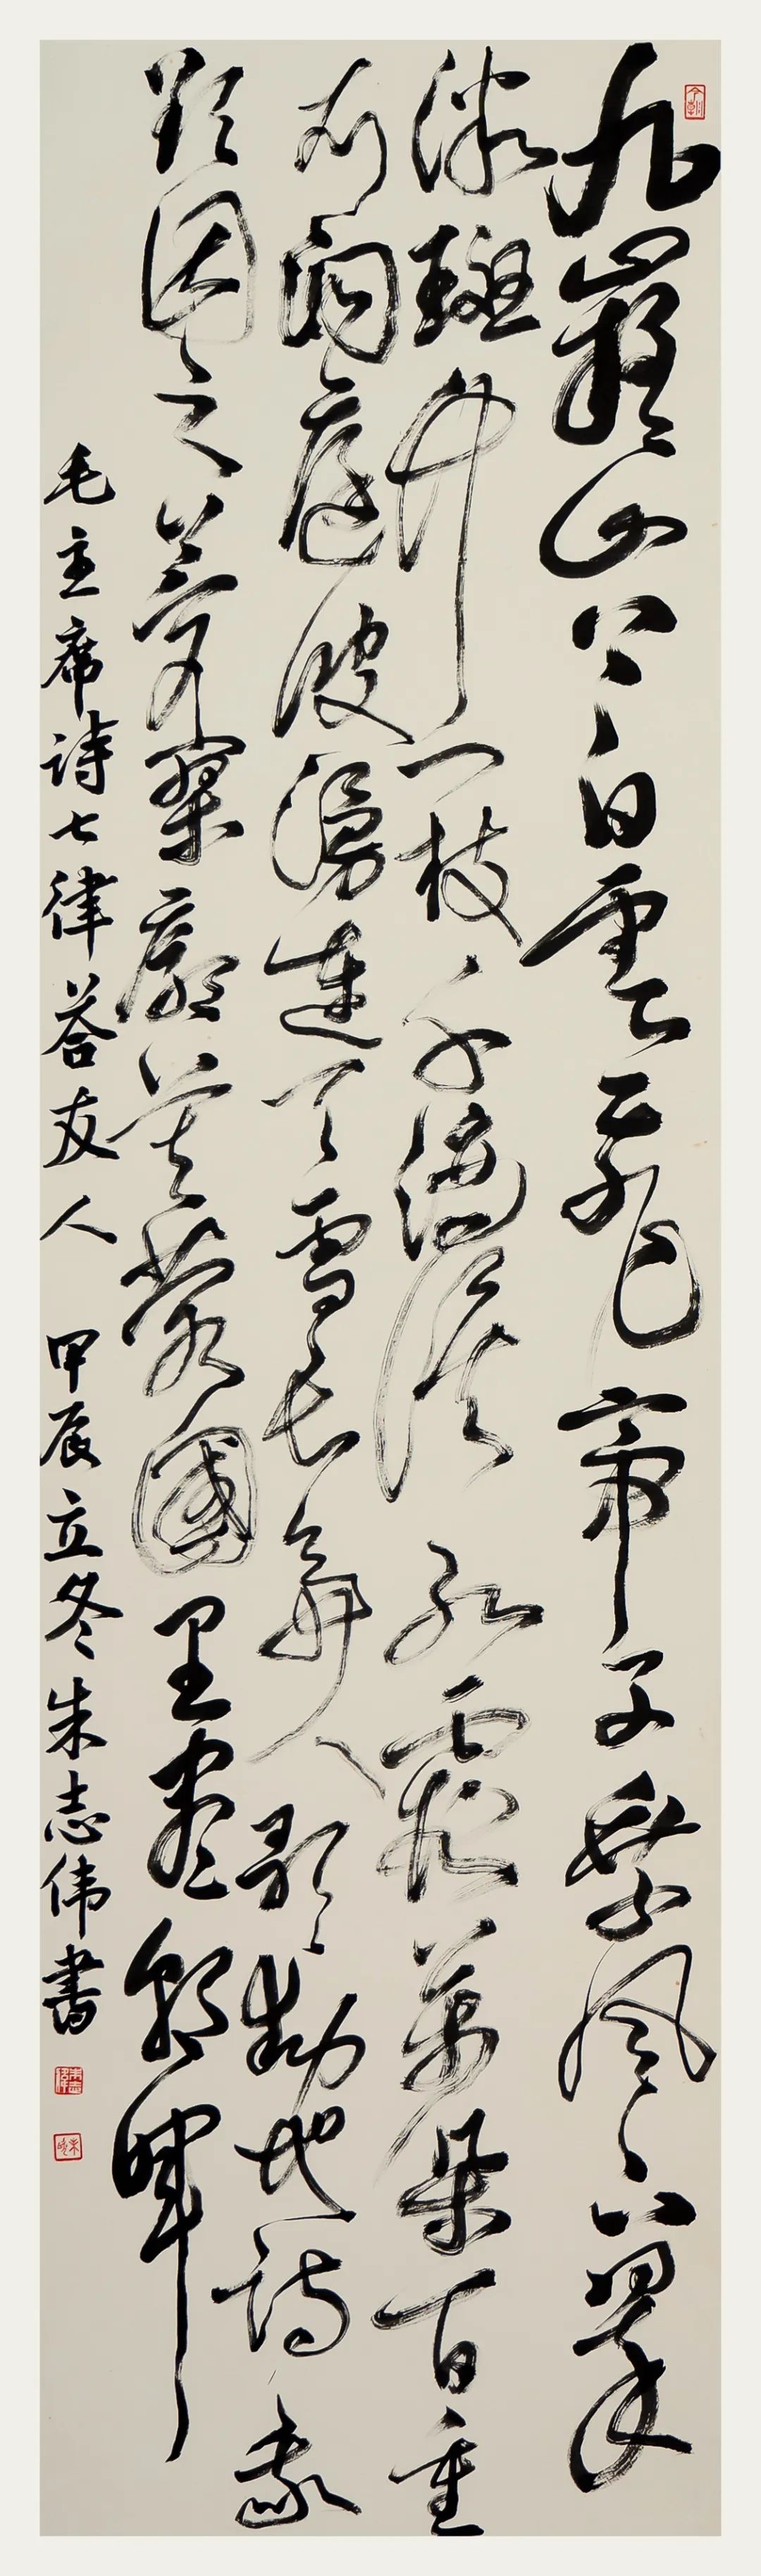 今朝
九嶷山上白雲飛帝子乘風下翠
微斑竹一枝千滴淚紅霞萬朵百重
衣洞庭波湧連天雪長島人歌動地詩我
欲因之夢寥廓芙蓉國里盡朝暉
毛主席詩七律荅友人 甲辰立冬朱志伟書